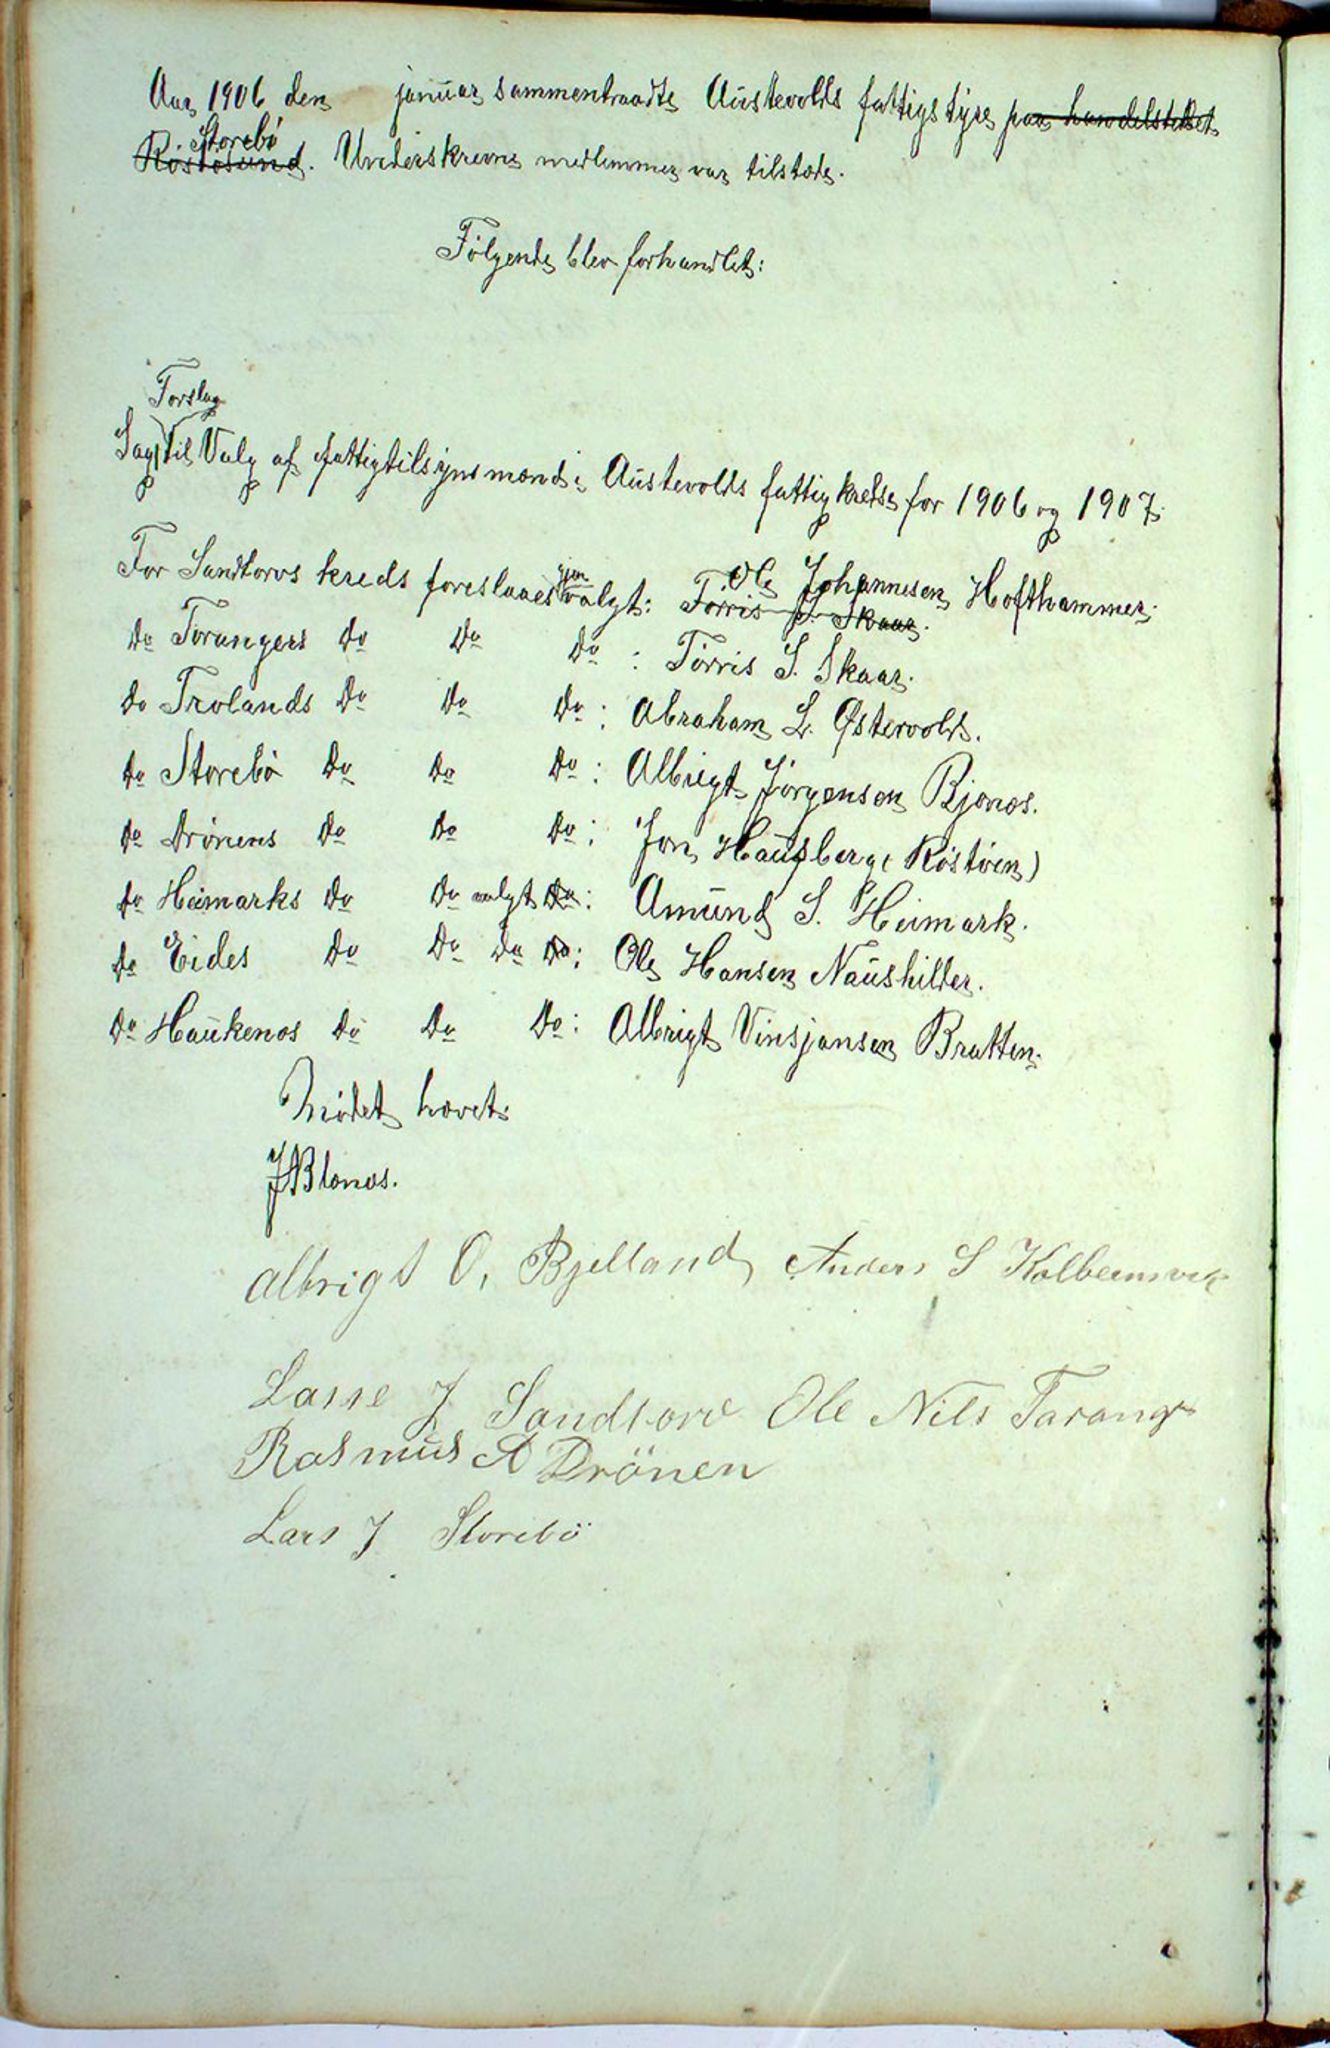 Aar 1906 den januar sammentraadte Austevolds fattigstyre paa handelstedet
Storebö
Röstösund. Underskrevne medlemmer var tilstæde.
Følgende blev forhandlet:
Forslag
Sag til Valg af fattigtilsynsmænd i Austevolds fattigkredse for 1906 og 1907.
For Sandtorvs kreds foreslaaes gjenvalgt: Ole Johannesen Hofthammer.
Tørris S. Skaar.
do Torangers do do do : Tørris S. Skaar.
do Trolands do do do : Abraham L. Østervold.
do Storebö do do do : Albrigt Jörgensen Bjønæs.
do Drönens do do do : Jon Haugsberg (Röstöen)
do Heimarks do do valgt do : Amund S. Heimark.
do Eides do do do do : Ole Hansen Naushilder.
do Haukenæs do do do : Albrigt Vinsjansen Bratten.
Mödet hævet.
J A Blænæs.
Albrigt O. Bjelland Anders S Kolbeensvik
Lasse J Sandtorv Ole Nils Tarang
Rasmus A Drönen
Lars J Storebö